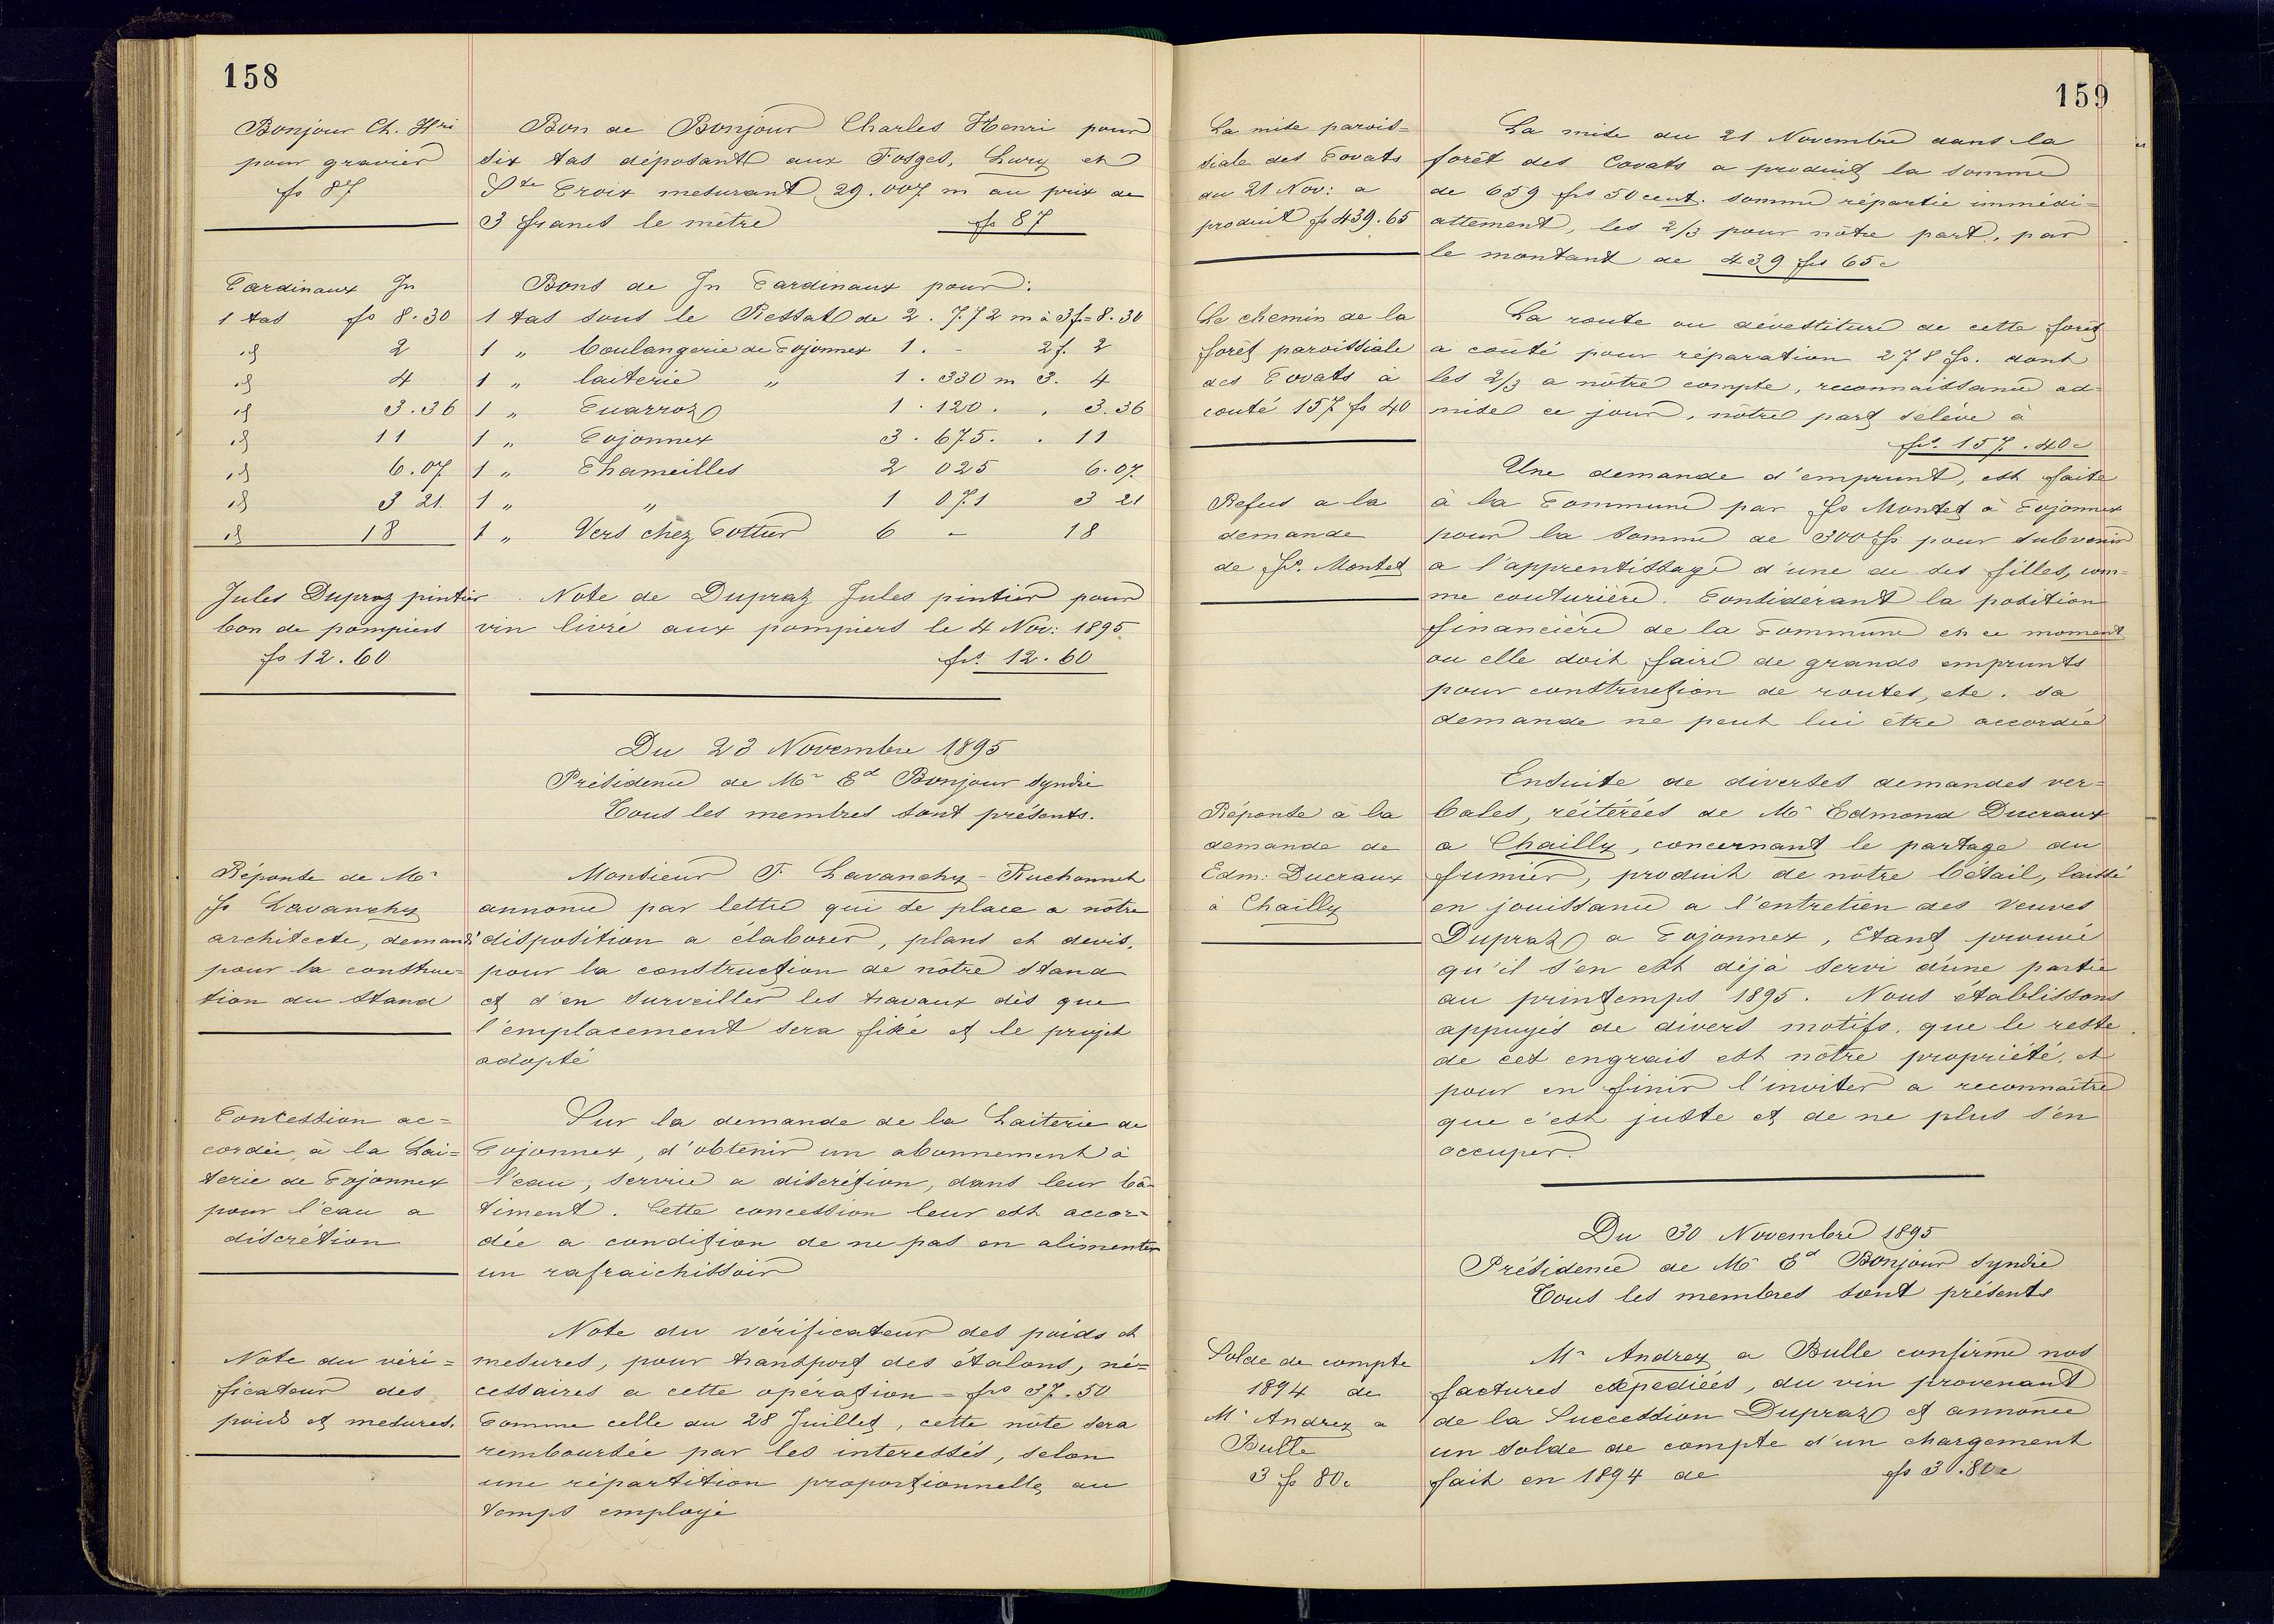 158
Bonjour Ch. Hri
pour gravier
fs 87
Bon de Bonjour Charles Henri pour
six tas déposant aux Fosses, Lury et
Ste Croix mesurant 29.007 m au prix de
3 francs le mètre fs 87
Cardinaux Jn
1 tas fs 8.30
id 2
id 4
id 3.36
id 11
id 6.07
id 3 21
id 18
Bons de Jn Cardinaux pour:
1 tas sous le Ressat de 2.772 m à 3 f = 8.30
1 „ boulangerie de Cojonnex 1. - 2 f. 2
1 „ laiterie „ 1.330 m 3. 4
1 „ Cuarroz 1.120 . . 3.36
1 „ Cojonnex 3.675. . 11
1 „ Chameilles 2 025 6.07
1 „ „ 1 071 3 21
1 „ Vers chez Cottur 6 - 18
Jules Dupraz pintier
bon de pompiers
fs 12.60
Note de Dupraz Jules pintier pour
vin livré aux pompiers le 4 Nov: 1895
frs. 12.60
Du 23 Novembre 1895
Présidence de Mr Ed Bonjour syndic
Tous les membres sont présents.
Réponse de Mr
fs Lavanchy
architecte, demand:
pour la construc=
tion du stand
Monsieur F. Lavanchy-Ruchonnet
annonce par lettre qui se place a nôtre
disposition a élaborer, plans et devis,
pour la construction de nôtre stand
et d'en surveiller les travaux dès que
l'emplacement sera fixé et le projet
adopté
Concession ac=
cordée à la Lai=
terie de Cojonnex
pour l'eau a
discrétion
Sur la demande de la Laiterie de
Cojonnex, d'obtenir un abonnement à
l'eau, servie a discrétion, dans leur bâ-
timent. Cette concession leur est accor-
dée a condition de ne pas en alimenter
un rafraichissoir
Note du véri=
ficateur des
poids et mesures.
Note du vérificateur des poids et
mesures, pour transport des étalons, né=
cessaires a cette opération = frs 37.50
Comme celle du 28 Juillet, cette nôte sera
remboursée par les interessés, selon
une répartition proportionnelle, au
temps employé
159
La mise parois=
siale des Covats
du 21 Nov: a
produit fs 439.65
La mise du 21 Novembre dans la
forêt des Covats a produit la somme
de 659 frs 50 cent. somme répartie immédi=
attement, les 2/3 pour nôtre part, par
le montant de 439 frs 65 c
Le chemin de la
forêt paroissiale
des Covats à
couté 157 fs 40
La route ou dévestiture de cette forêt
a coûté pour réparation 278 fs. dont
les 2/3 a nôtre compte, reconnaissance ad=
mise ce jour, nôtre part s'élève à
frs. 157.40 c
Refus a la
demande
de fs. Montet
Une demande d'emprunt, est faite
à la Commune par fs Montet à Cojonnex
pour la somme de 300 fs pour subvenir
a l'apprentissage d'une de ses filles, com=
me couturière. Considérant la position
financière de la Commune en ce moment
ou elle doit faire de grands emprunts
pour construction de routes, etc. sa
demande ne peut lui être accordée
Réponse à la
demande de
Edm: Ducraux
à Chailly
Ensuite de diverses demandes ver=
bales, réitérées de Mr Edmond Ducraux
a Chailly, concernant le partage du
fumier, produit de nôtre bétail, laissé
en jouissance a l'entretien des veuves
Dupraz a Cojonnex, Etant prouvé
qu'il s'en est déjà servi d'une partie
au printemps 1895. Nous établissons
appuyés de divers motifs, que le reste
de cet engrais est nôtre propriété, et
pour en finir l'inviter a reconnaître
que c'est juste et de ne plus s'en
occuper.
Du 30 Novembre 1895
Présidence de Mr Ed Bonjour syndic
Tous les membres sont présents
Solde de compte
1894 de
Mr Andrey a
Bulle
3 fs 80 c
Mr Andrey a Bulle confirme nos
factures expediées, du vin provenant
de la Succession Dupraz et annonce
un solde de compte d'un chargement
fait en 1894 de fs 3.80 c